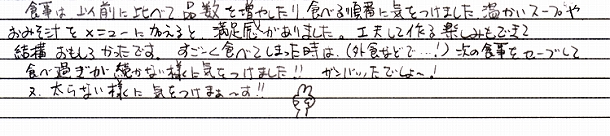 食事は以前に比べて品数を増やしたり食べる順番に気をつけました。温かいスープや
おみそ汁をメニューに加えると満足感がありました。工夫して作る楽しみもでてきて
結構おもしろかったです。すごーく食べてしまった時は、(外食などで…!)次の食事をセーブして
食べ過ぎが続かない様に気をつけました!! ガンバッたでしょ〜!
又、太らない様に気をつけまぁ〜す!!